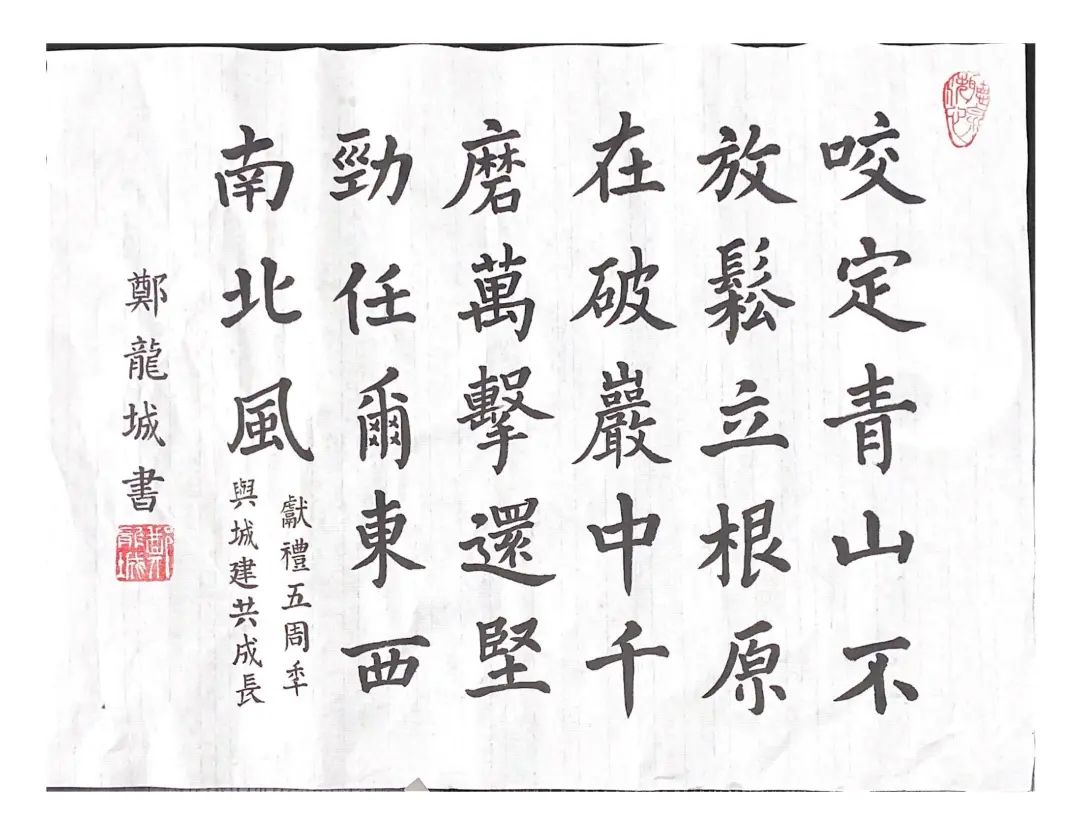 咬定青山不
放鬆立根原
在破巖中千
磨萬擊還堅
勁任爾東西
南北風
獻禮五周年
與城建共成長
鄭龍城書
鄭龍城